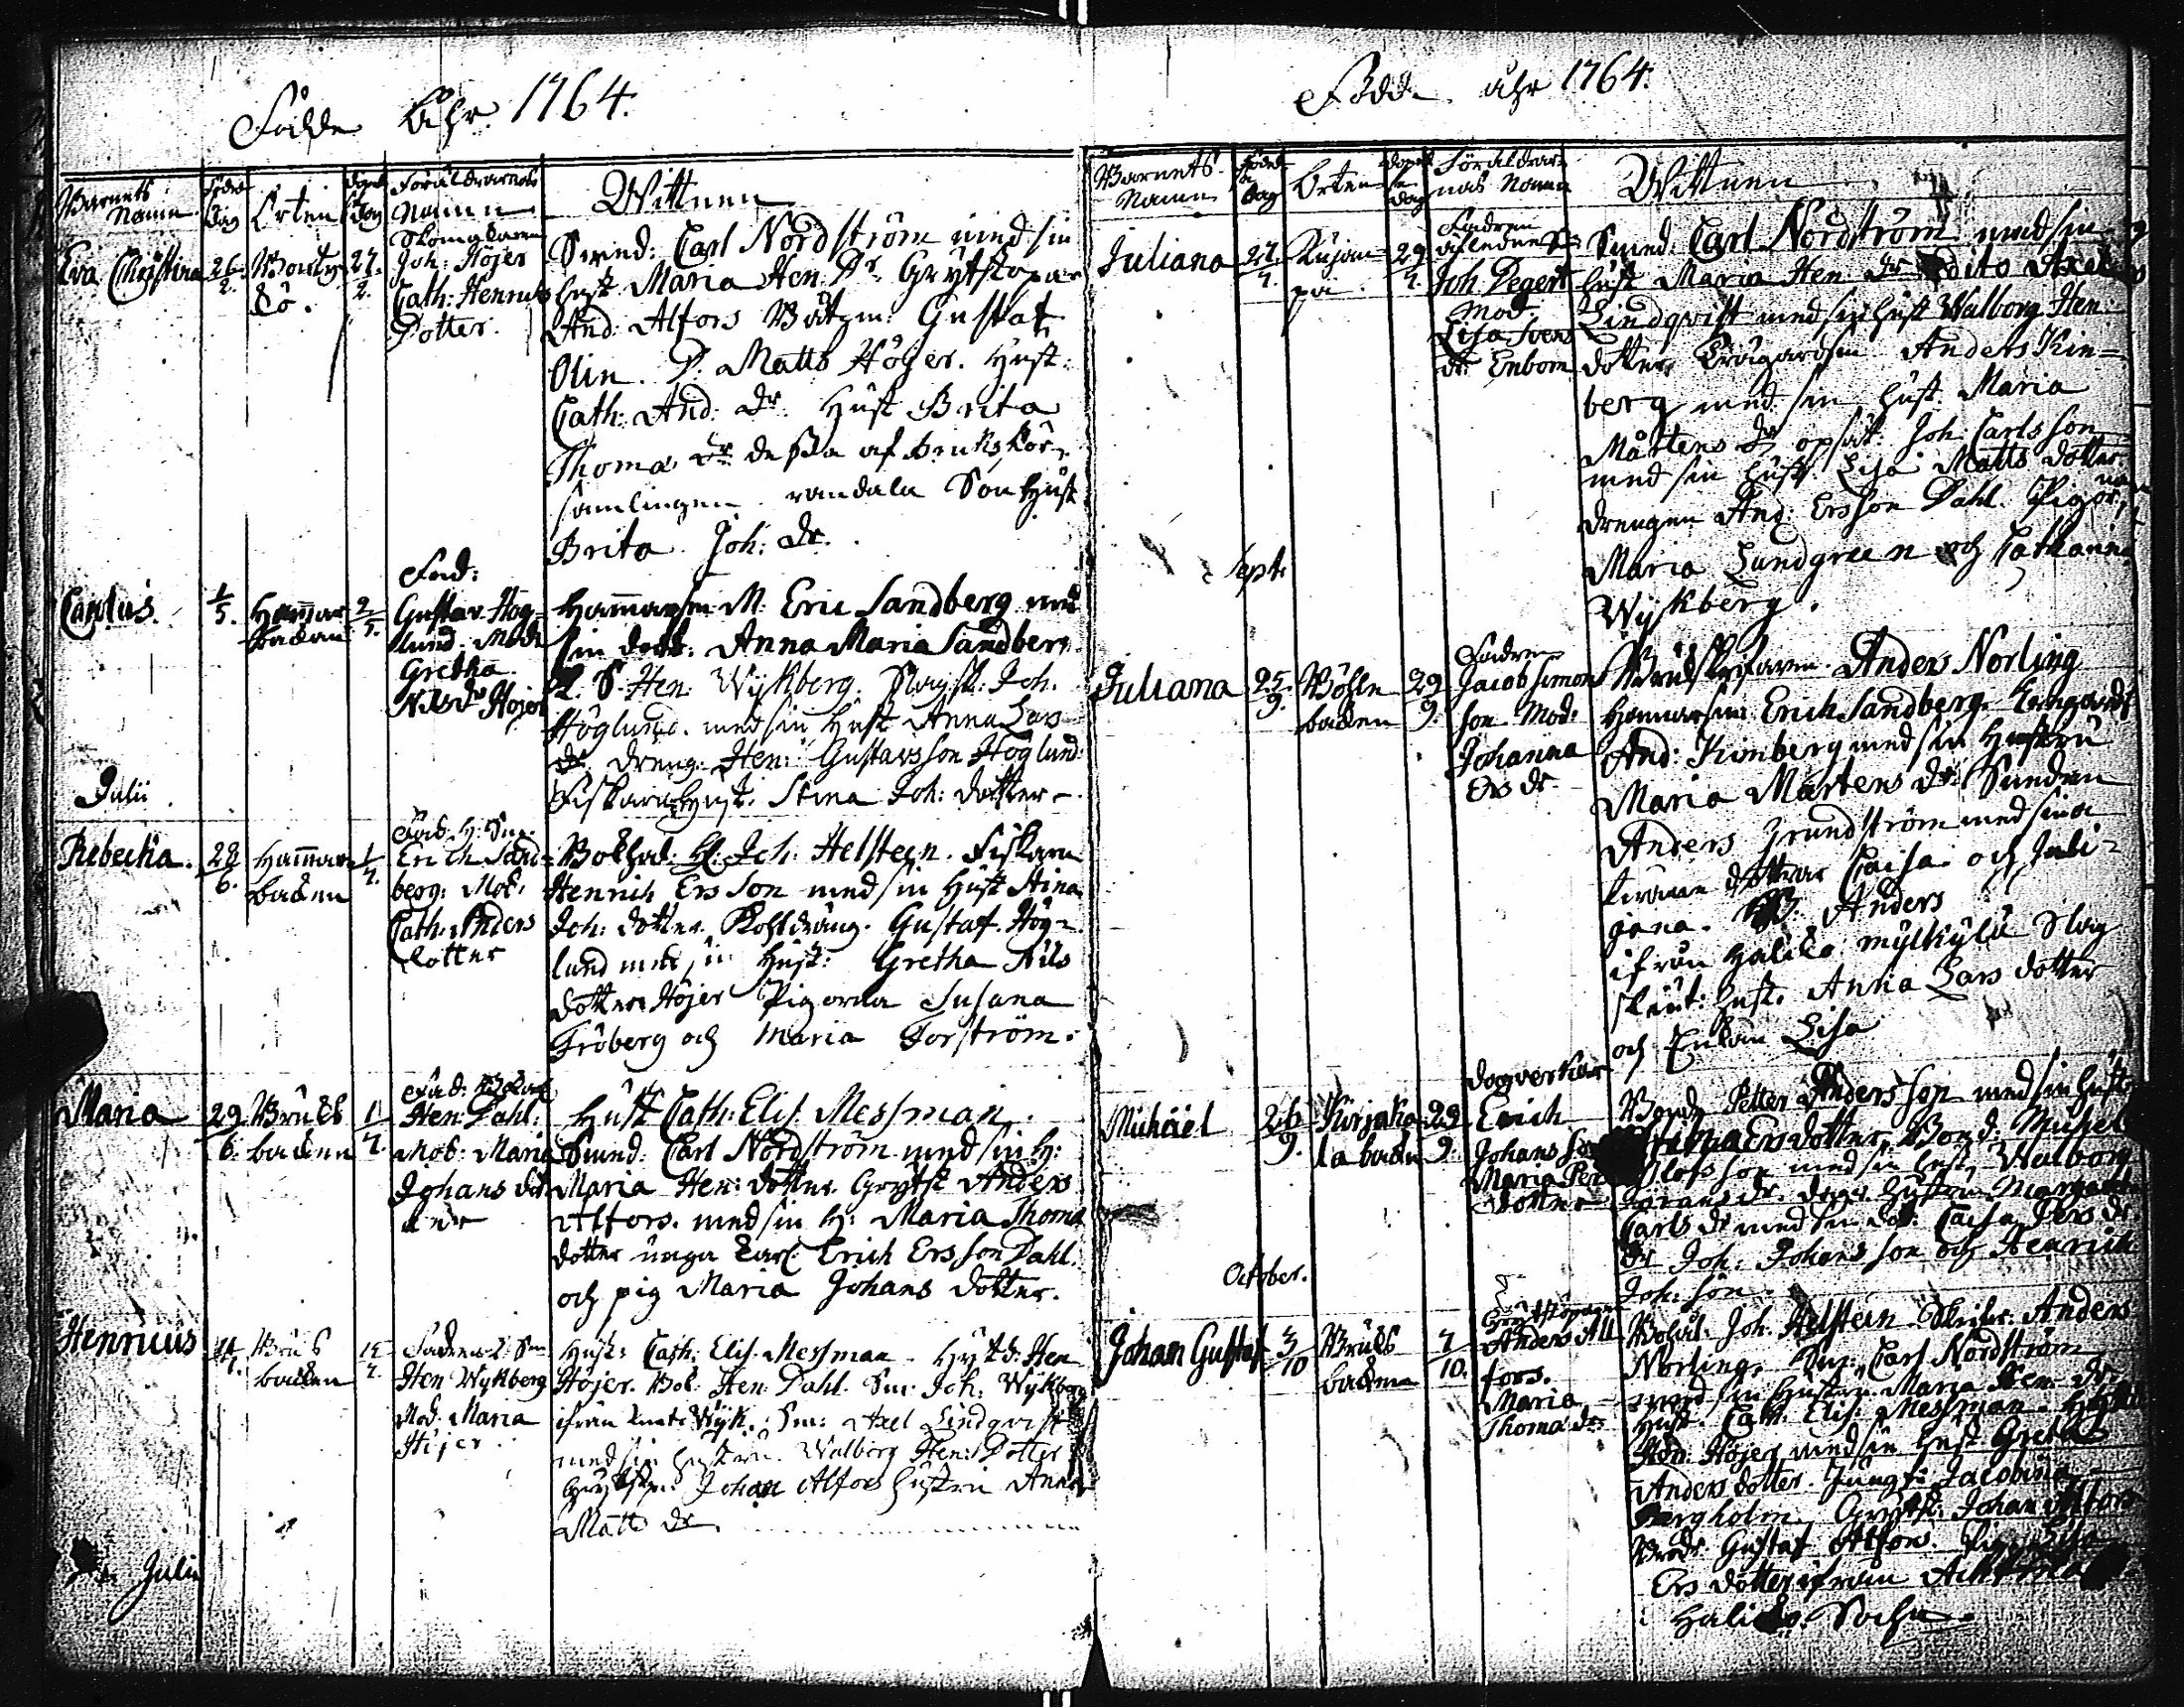 Födde åhr 1764.
Barnets Namn
Föd. dag
Orten
döpt dag
Föräldrarnas Namn
Wittnen
Eva Christina
26/2.
27/2.
Skomakaren
Joh: Höjer
Cath: Henrics
Dotter.
Smed: Carl Nordström med sin
hust. Maria Hen. Dr Grytstöpar
And: Alfors Gustaf
Olin. D. Matts Höjer. Hust:
Cath: And: dr. Hust Brita
Thomæ dr dessa af Bruksför-
samlingen
Brita Joh: dr.
Carolus.
1/5.
Hammar
backan
2/5.
Fad:
Gustav Hög-
lund. Mod:
Gretha
Nilsdr Höjer
Hammarsm: M. Eric Sandberg med
sin dott: Anna Maria Sandberg
L. S. Hen: Wykberg. Joh.
Höglund. med sin Hust Anna Lars
dr. dreng. Hen: Gustavsson Höglund:
Fiskare hust. Stina Joh: dotter.
Julii.
Rebecka.
28/6.
Hammar
backen
1/7.
Erich Sand-
berg: Mod.
Cath: Anders
dotter
Bokhål: H: Joh: Helsteen. Fiskaren
Henrich Ersson med sin Hust Stina
Joh: dotter. Kohldräng. Gustaf Hög-
lund med sin Hust: Gretha Nils
dotter Höjer Pigorna Susana
Fröberg och Maria Forström.
Maria
29/6.
Bruks
backen
1/7.
Hen: Dahl:
Mod: Maria
Johans dot
ter
Hust Cath: Elis. Messman
Smed: Carl Nordström med sin h:
Maria Hen: dotter. Grytst Anders
Alfors. med sin h: Maria Thoma
dotter unga karl: Erich Ersson Dahl:
och pig Maria Johans dotter.
Henricus
Bruks
backen
15/7.
Fadren L. Sm
Hen Wykberg
Mod. Maria
Höjer.
Hust: Cath: Elis. Messman. Hytd: Hen
Höjer. Bok: Hen: Dahl. Sm: Joh: Wykberg
ifrån Wyk. Sm: Axel Lindqvist
med sin hustru. Walborg Hen: Dotter
Grytstöp: Johan Alfors hustru Anna
Matts dr
Julii
Födde åhr 1764.
Barnets Namn
Födelse dag
Orten
döpelse dag
Föräldrar-
nas Namn
Wittnen
Juliana
27/7.
29/7.
Fadren
aflednes:
Joh. Degert
Mod.
Lisa Svens
dr. Enbom
Smed: Carl Nordström med sin
hust Maria Hen: dr dito Axel
Lindqvist med sin hust Walborg Hen:
dotter Anders Kin=
berg med sin hust. Maria
Mårtens dr opsåt: Joh: Carlsson
med sin hust. Lisa Matts dotter
drengen And: Ersson Dahl. Pigor
Maria Lundgreen och Catharina
Wykberg.
Sept.
Juliana
25/9.
backen
29/9.
Fadren
Jacob Simons
son Mod:
Johanna
Ers dr.
Anders Norling
Hammarsm: Erich Sandberg.
And: Kimberg med sin Hustru
Maria Mårtens dr Smeden
Anders Grundström med sina
döttrar Caisa och Juli-
jana. Anders
ifrån Haliko
hust. Anna Lars dotter
och Lisa
Michäel
26/9.
29/9.
dagverkar
Erich
Johansson
Maria
dotter
Bond. Petter Andersson med sin hust
Ersdotter. Bond: Michel
Olofsson med sin hust. Walborg
hustru Margareta
Carls dr med sin dot: Caisa Pers dr
Dr Joh: Johansson och Henrich
Joh: son.
October.
Johan Gustaf
3/10
Bruks
backen
7/10.
Grytstöparen
Anders Alfors.
Maria
Thoma dr
Bokhål: Joh. Helsteen. Skrifar: Anders
Norling. Sm. Carl Nordström
med sin hustru. Maria Hen: dr
Hust. Cath: Elis: Messman.
Hen: Höjer med sin hust Gretha
Anders dotter. Jungf: Jacobina
Bergholm. Grytst: Johan Alfors
Gustaf Alfors.
Ers dotter ifrån
Haliko Sochn.